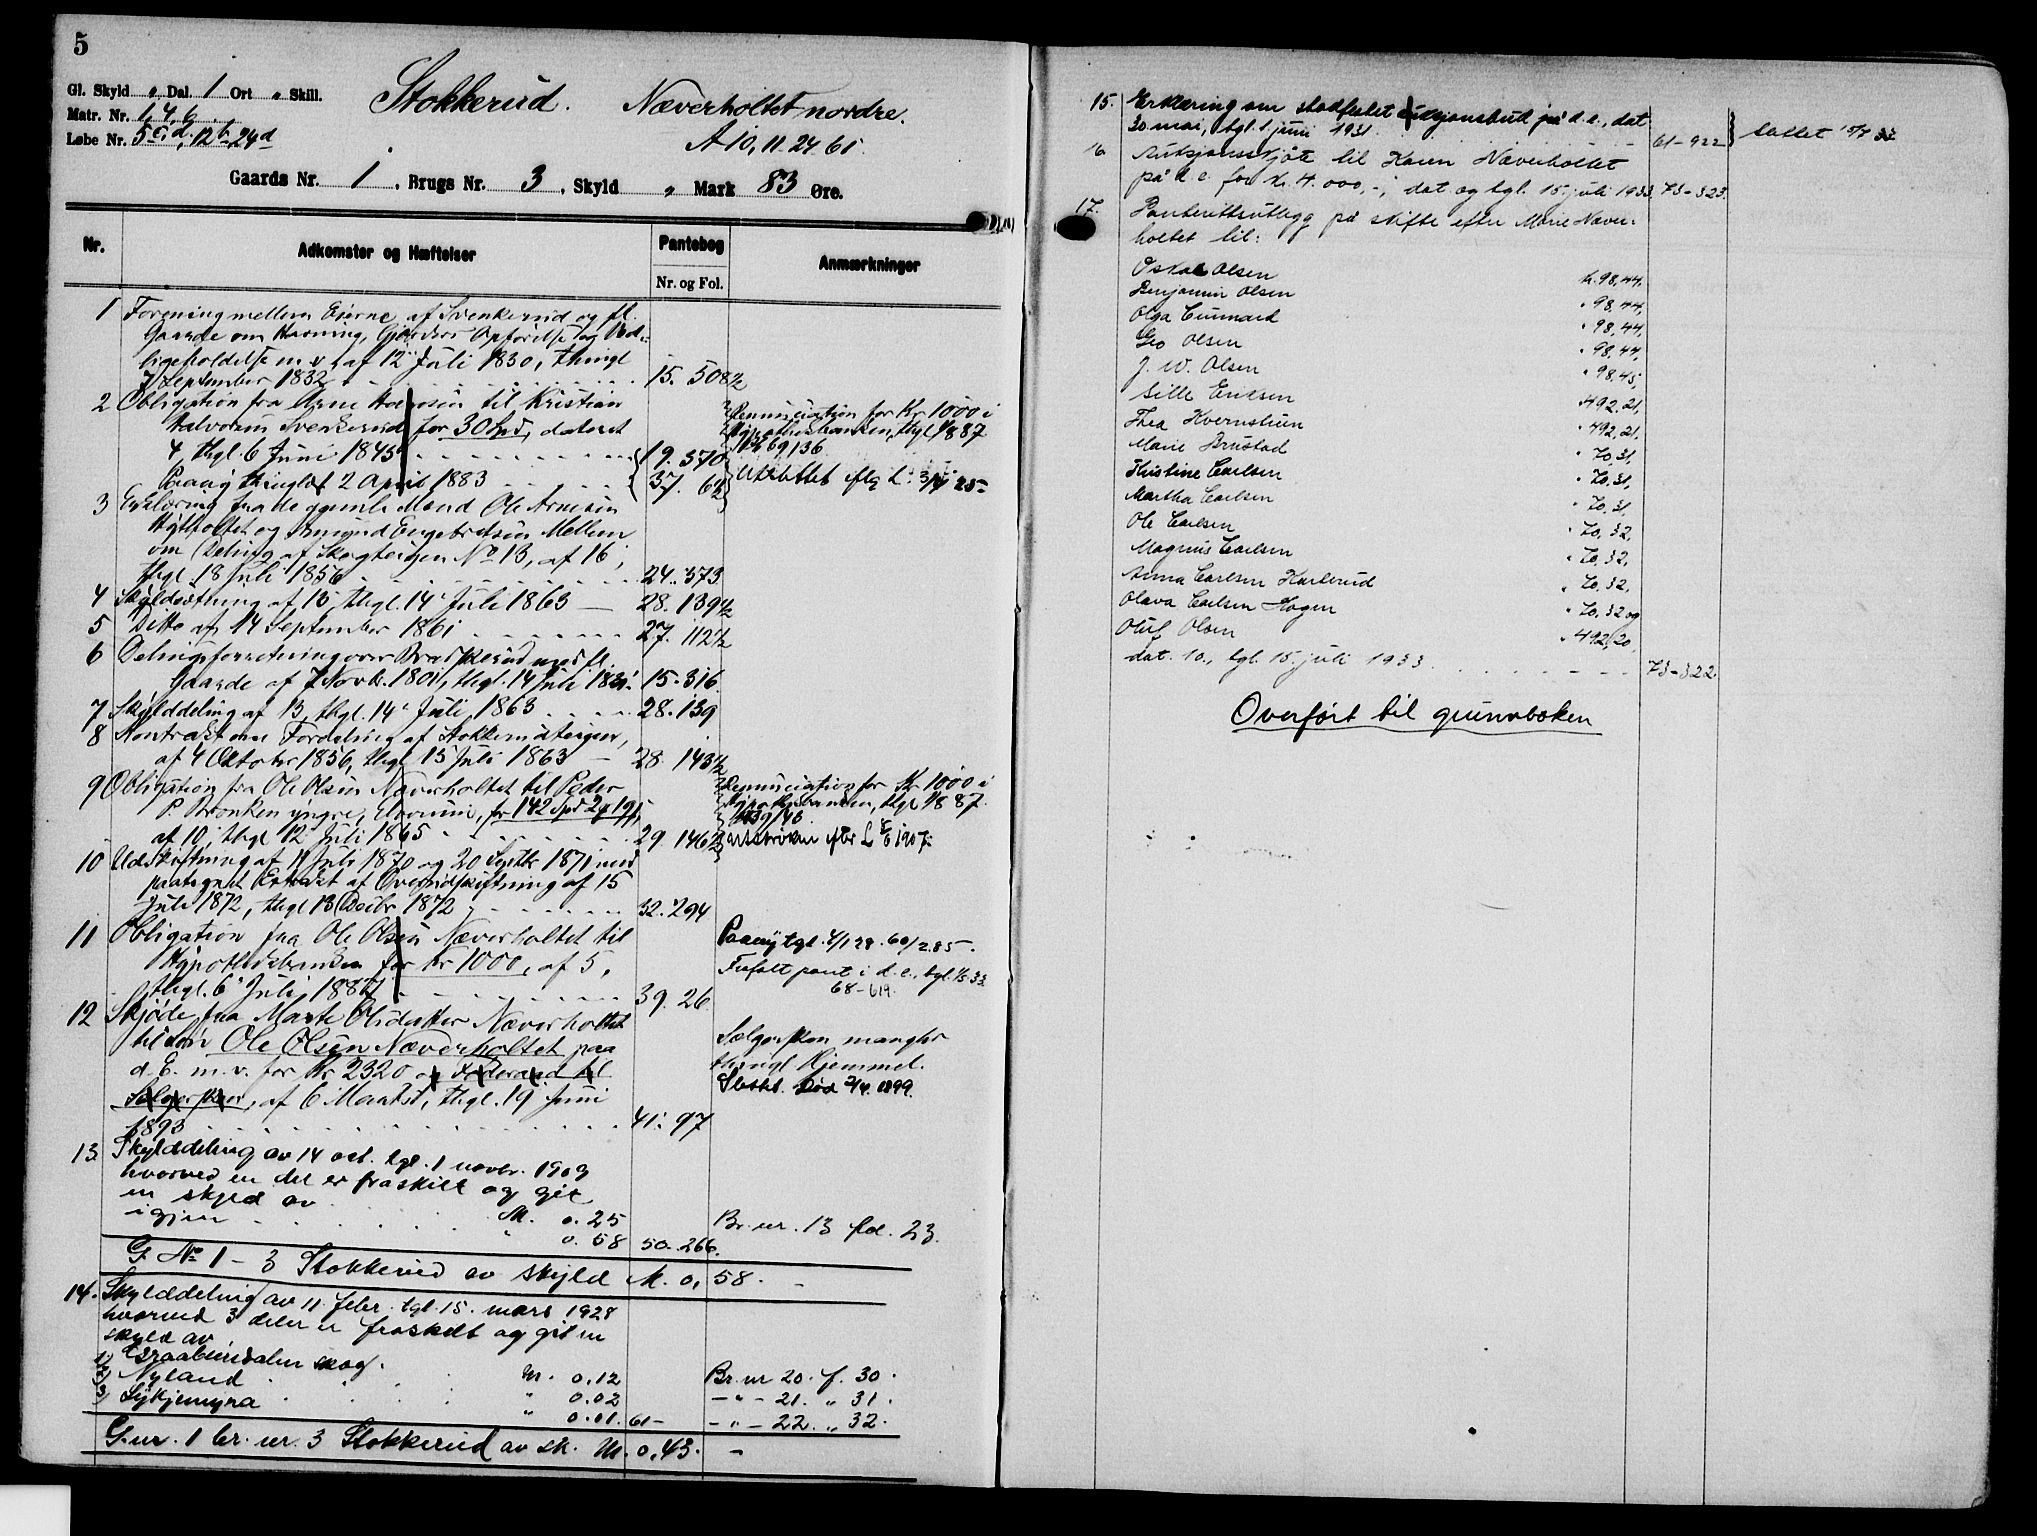 5
Gl. Skyld " Dal. 1 Ort " Skill.
Matr. Nr. 1, 4, 6
Løbe Nr. 5 c, d, 12 b, 24 d
Stokkerud. Næverholtet nordre.
A 10, 11. 24. 61.
Gaards Nr. 1, Brugs Nr. 3, Skyld " Mark 83 Øre.
Nr. Adkomster og Hæftelser Pantebog Anmærkninger
Nr. og Fol.
1 Forening mellem Eierne af Svenkerud og fl.
Gaarde om Havning, Gjærders Opførelse og Ved-
ligeholdelse m.v. af 12 Juli 1830, thingl
7 September 1832 15. 508½
2 Obligation fra Arne Halvorsen til Kristian
Halvorsen Svenkerud for 30 Spd, dateret
4, thgl. 6 Juni 1845 19. 370
Paany thinglæst 2 April 1883 37. 6½
Renunciation for Kr 1000 i
Hypothekbanken, thgl 1/8 87
69/136
Utslettet efter L.
3 Erklæring fra de gamle Mænd Ole Arnesen
Høtholtet og Amund Engebretsen Mellem
om Deling af Skogteigen No 13, af 16,
thgl. 18 Juli 1856 24. 373
4 Skyldsætning af 13, thgl. 14 Juli 1863 28. 139½
5 Ditto af 14 September 1861 27. 112½
6 Delingsforretning over Bradskerud med fl.
Gaarde af 7 Novbr. 1801, thgl. 14 Juli 1831 15. 316
7 Skylddeling af 13, thgl. 14 Juli 1863 28. 139
8 Kontrakt om Fordeling af Stokkemåteigen,
af 4 Oktober 1856, thgl 15 Juli 1863 28. 143½
9 Obligation fra Ole Olsen Næverholtet til Peder
P. Kronken yngre, Elverum, for 142 Spd 2 19,
af 10, thgl 12 Juli 1865 29. 146½
Renunciation for Kr 1000 i
Hypothekbanken, thgl 1/8 87.
utstrøken efter L 1907.
10 Udskiftning af 11 Juli 1870 og 20 Septbr 1871 med
paategnet Extrakt af Overudskiftning af 15
Juli 1872, thgl 13 Decbr 1872 32. 294
11 Obligation fra Ole Olsen Næverholtet til
Hypothekbanken for Kr 1000, af 5,
thgl. 6 Juli 1887 39. 26
Paany tgl. 4/1 28. 60/285.
Frafalt pant i d. e., tgl. 1/5 33
68-619.
12 Skjøde fra Marte Olsdatter Næverholtet
til Søn Ole Olsen Næverholtet paa
d. E. m. v. for Kr 2320 og Føderaad til
Sælgersken, af 6 Marts, thgl. 19 Juni
1893 41. 97
Sælgersken mangler
thingl Hjemmel.
Slettet. Død 2/4 1899.
13 Skylddeling av 14 oct. tgl. 1 novbr. 1909
hvorved en del er fraskilt og git
en skyld av M. 0.25
igjen " 0.58 50. 266. Br. nr. 13 fol. 23.
G. No 1 - 3 Stokkerud av skyld M. 0,58.
14. Skylddeling av 11. febr. tgl. 15. mars 1928
hvorved 3 deler er fraskilt og git en
skyld av
1) Graabeindalen skog. M. 0.12 Br. nr 20. f. 30.
2) Nyland " 0.02 - " - 21. " 31.
3) Lykjemyra " 0.01. 61- - " - 22. " 32.
G. nr. 1 br. nr. 3 Stokkerud av sk. M. 0,43. -
15. Erklæring om stadfestet auksjonsbud på d. e., dat
30 mai, tgl. 1 juni 1931. 61-922 slettet 15/7 33
16 Auksjonsskjøte til Karen Næverholtet
på d. e. for kr. 4.000,-, dat og tgl. 15. juli 1933 73-323.
17. Panterettsutlegg på skifte efter Marie Næver-
holtet til:
Oskar Olsen kr. 98,44,
Benjamin Olsen " 98,44,
Olga Cunnard " 98,44,
Geo Olsen " 98,44,
J. W. Olsen " 98,45,
Sille Eriksen " 492,21,
Thea Kvernstuen " 492,21,
Marie Brustad " 70,31,
Kristine Carlsen " 70,31,
Martha Carlsen " 70,31,
Ole Carlsen " 70,32,
Magnus Carlsen " 70,32,
Anna Carlsen Karterud " 70,32,
Olava Carlsen Hagen " 70,32 og
Oluf Olsen " 492,20,
dat. 10., tgl. 15. juli 1933 73-322
Overført til grunnboken